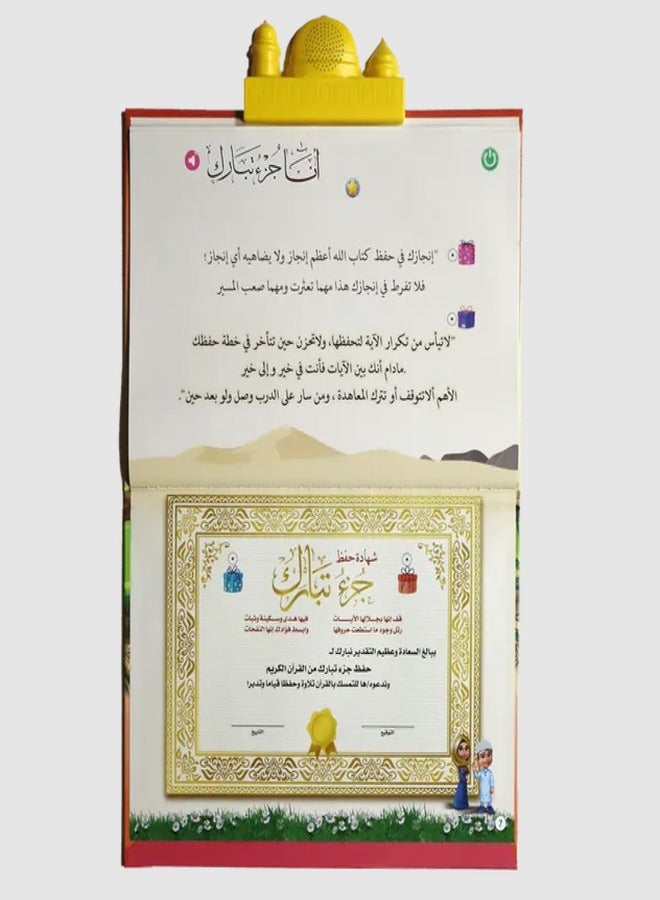 أنا جزء تبارك
"إنجازك في حفظ كتاب الله أعظم إنجاز ولا يضاهيه أي إنجاز؛
فلا تفرط في إنجازك هذا مهما تعثرت ومهما صعب المسير
"لاتيأس من تكرار الآية لتحفظها، ولاتحزن حين تتأخر في خطة حفظك
.مادام أنك بين الآيات فأنت في خير و إلى خير
الأهم ألاتتوقف أو تترك المعاهدة ، ومن سار على الدرب وصل ولو بعد حين".
شهادة حفظ
جزء تبارك
قف إنها بجلالها الآيــات فيها هدى وسكينة وثبات
رتل وجود ما استطعت حروفها وابسط فؤادك إنها النفحات
ببالغ السعادة وعظيم التقدير نبارك لـ
حفظ جزء تبارك من القرآن الكريم
وندعوه/ها للتمسك بالقرآن تلاوة وحفظا قياما وتدبرا
التوقيع التاريخ
7